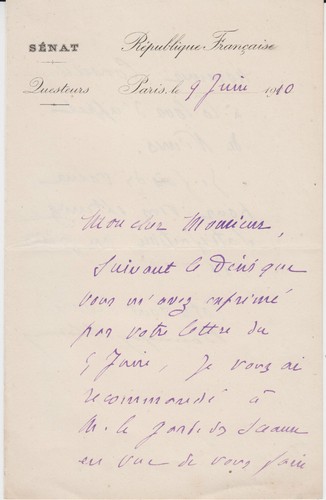 SÉNAT
République Française
Questeurs
Paris, le 9 Juin 1910
Mon cher Monsieur,
suivant le désir que
vous m'avez exprimé
par votre lettre du
5 Juin, je vous ai
recommandé à
M. le Garde des Sceaux
en vue de vous faire